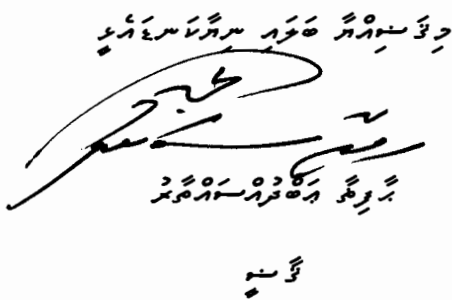 މިޤަޟިއްޔާ ބަލައި ނިޔާކަނޑައެޅީ
ޙާފިޡާ ޢަބްދުއްސައްތާރު
ޤާޟީ